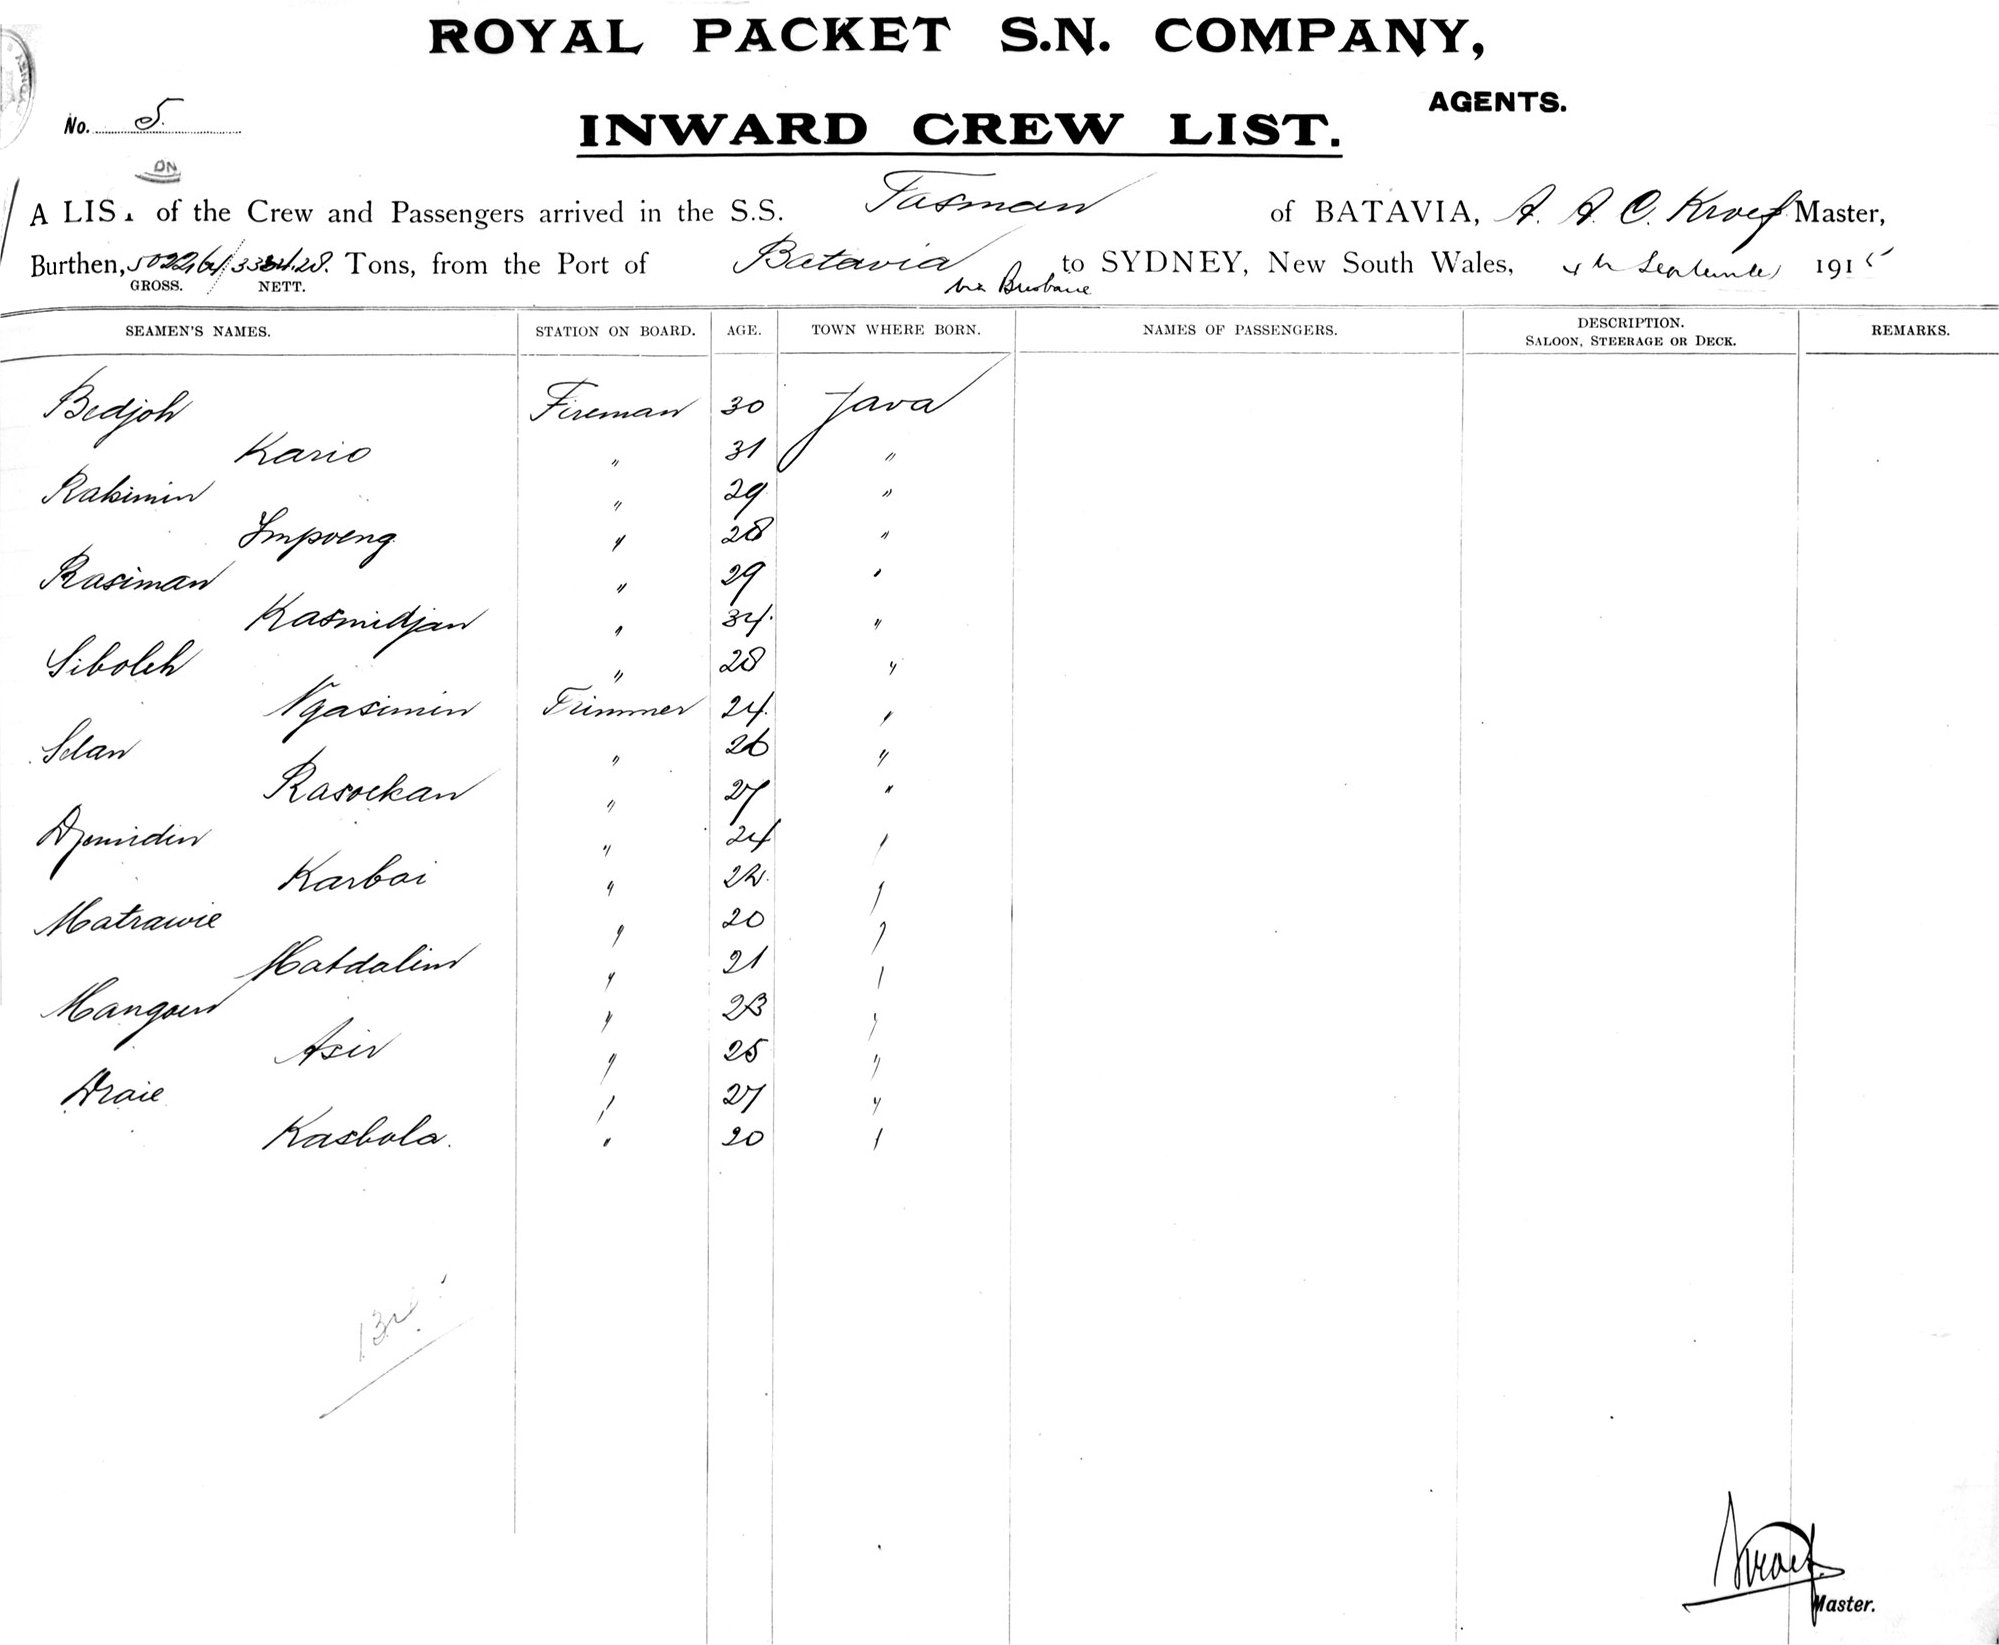 ROYAL PACKET S.N. COMPANY,
AGENTS.
No. 5.
INWARD CREW LIST.
A LIST of the Crew and Passengers arrived in the S.S. Tasman of BATAVIA, A. A. C. Kroef Master,
Burthen, 5022,64/3334.28. Tons, from the Port of Batavia to SYDNEY, New South Wales, 4th September 1915
GROSS. NETT. via Brisbane
SEAMEN'S NAMES. STATION ON BOARD. AGE. TOWN WHERE BORN. NAMES OF PASSENGERS. DESCRIPTION. SALOON, STEERAGE OR DECK. REMARKS.
Bedjoh Fireman 30 Java
Kario " 31 "
Rakimin " 29 "
Impoeng " 28 "
Rasiman " 29 "
Kasmidjan " 34. "
Siboleh " 28 "
Ngasimin Trimmer 24. "
Selan " 26 "
Rasoekan " 27 "
Djemidin " 24 "
Karbai " 22. "
Matrawie " 20 "
Matdalim " 21 "
Mangoen " 23 "
Asir " 25 "
Draie " 27 "
Kasbola. " 20 "
Kroef.
Master.